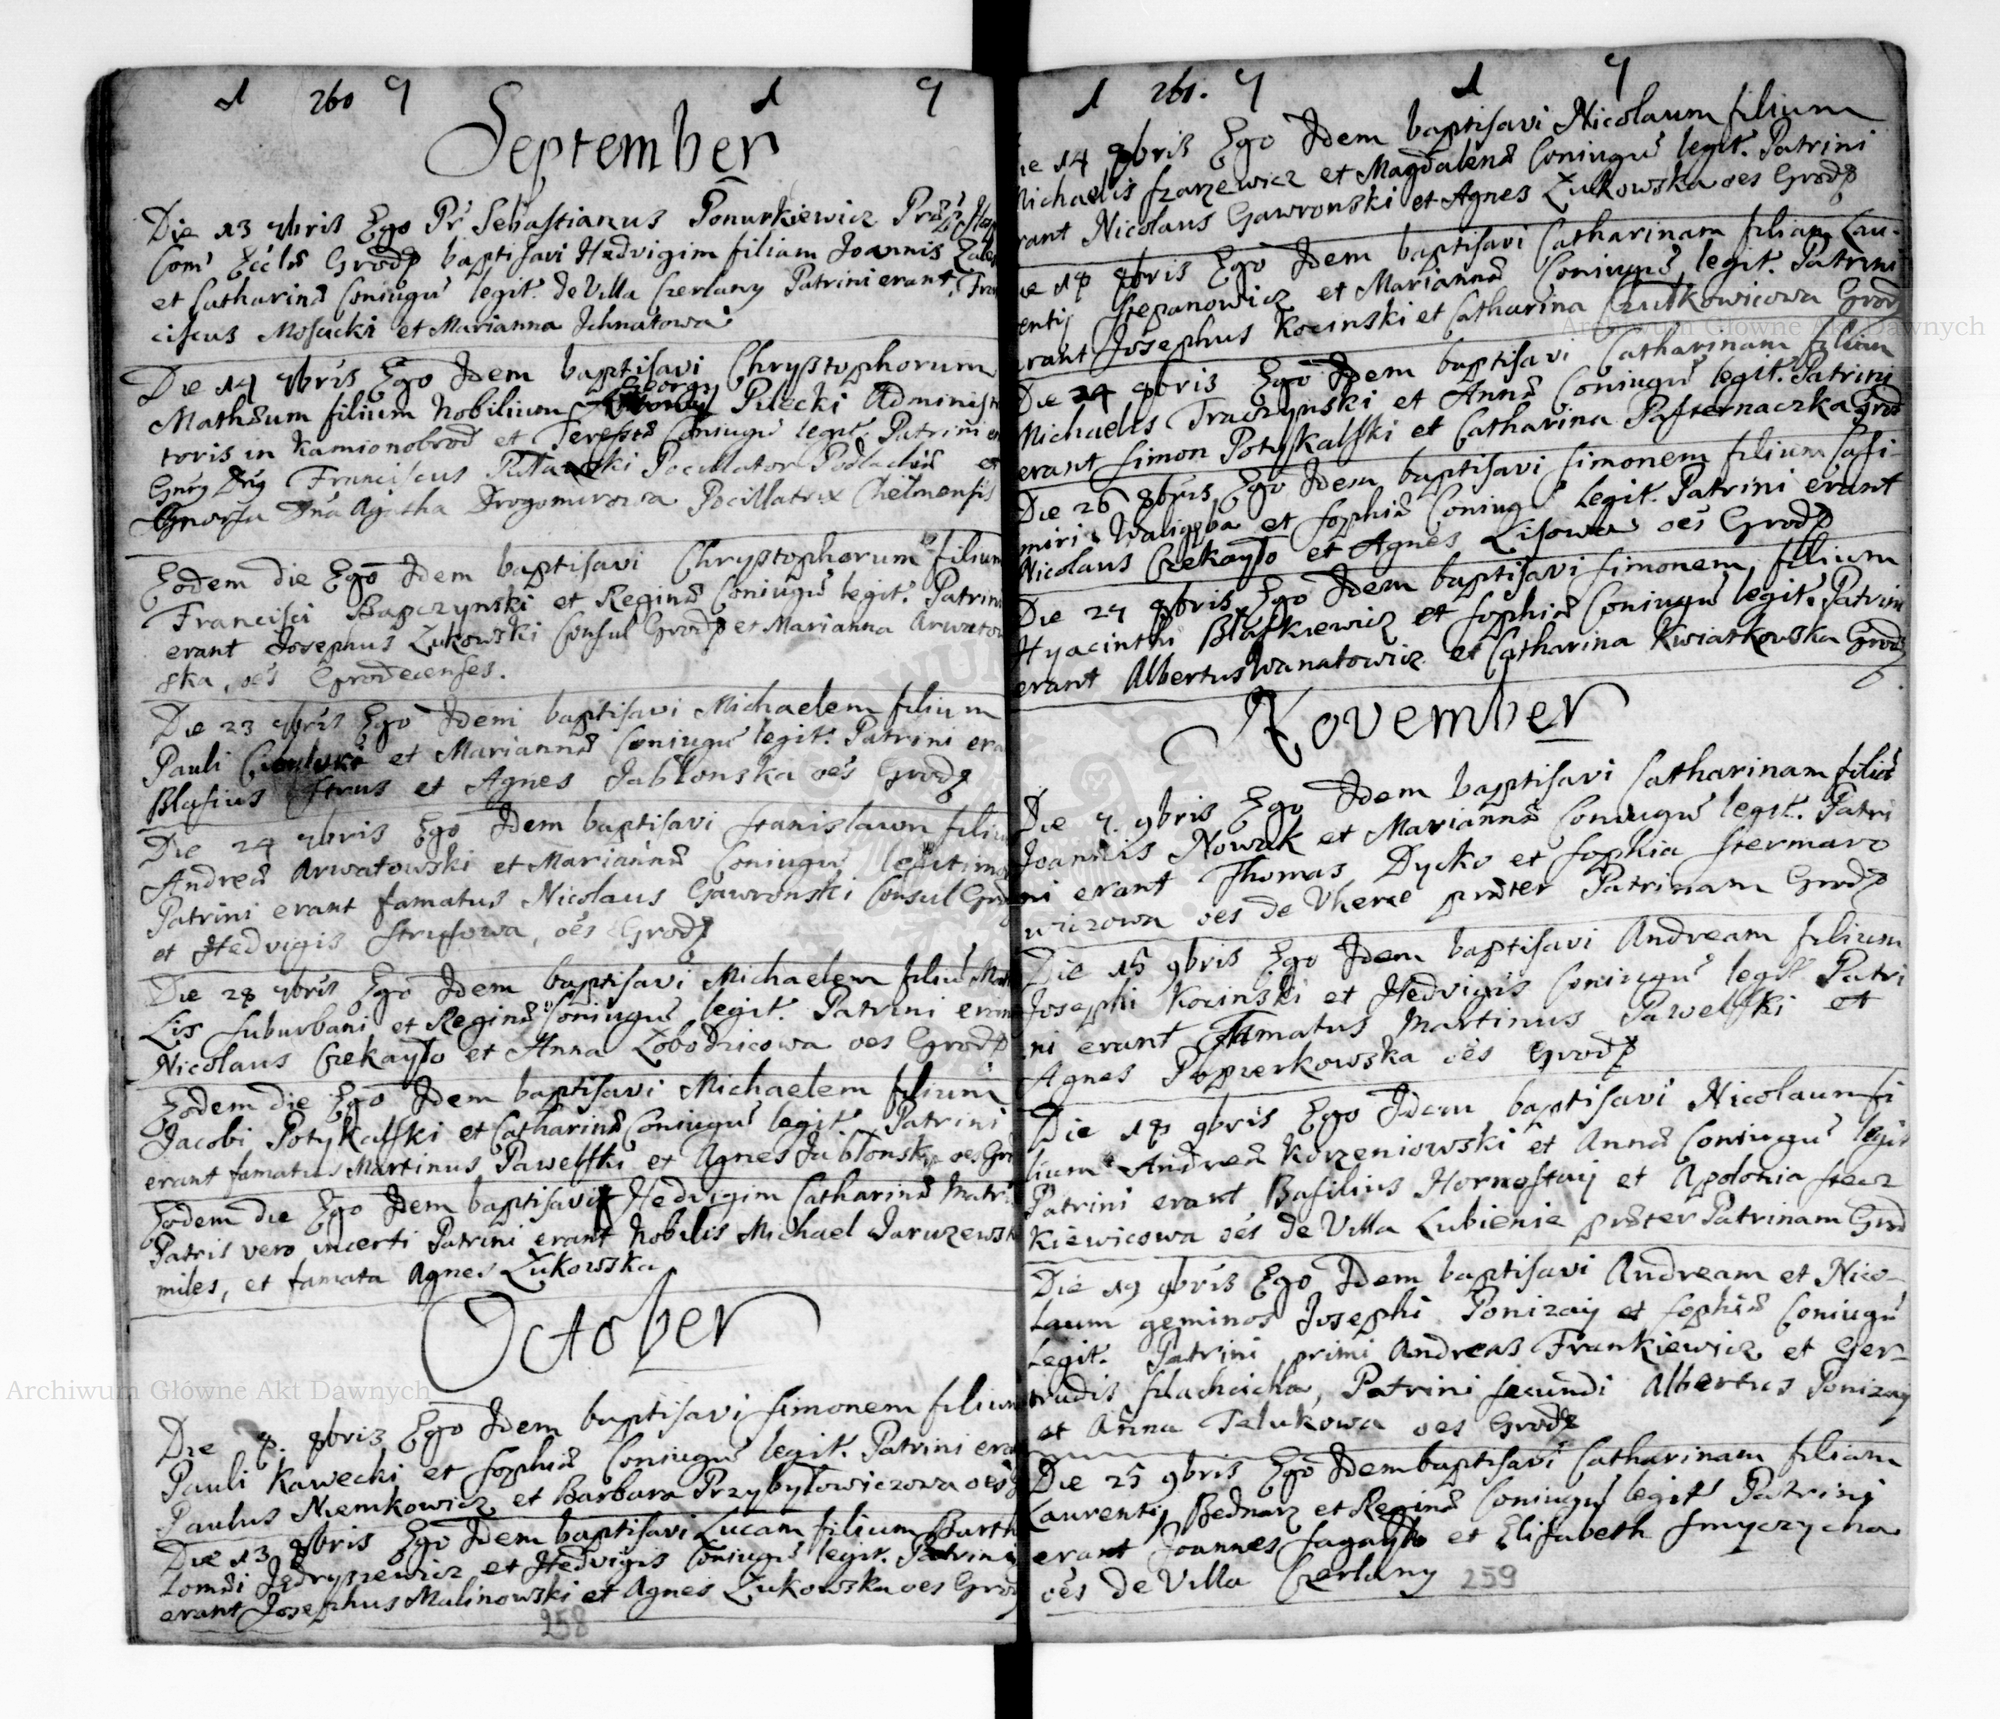 1 260 7 1 7
September
Die 13 7bris Ego Pr Sebastianus Ponurkiewicz
Com Eccla Grod baptisavi Hedvigim filiam Joannis
et Catharinæ Coniugũ legit. de Villa Czerlany Patrini erant Fran
ciscus Mosucki et Marianna Jchnatowa
Die 14 7bris Ego Idem baptisavi Chrystophorum
Mathæum filium Nobilium Georgy Pilecki Administra
toris in Kamionobrod et Teressæ Coniugũ legit. Patrini er
Franciscus Pocillator Podlachiæ et
Dna Agatha Drogomirowa Pocillatrix Chelmensis
Eodem die Ego Idem baptisavi Chrystophorum filium
Francisci Bapczynski et Reginæ Coniugũ legit. Patrini
erant Josephus Zukowski Consul Grod et Marianna Arwatow
ska, oēs Grodecenses.
Die 23 7bris Ego Idem baptisavi Michaelem filium
Pauli et Mariannæ Coniugũ legit. Patrini era
Blasius Strus et Agnes Jabłonska oēs Grod
Die 24 7bris Ego Idem baptisavi Stanislaum filiu
Andreæ Arwatowski et Mariannæ Coniugũ legitimo
Patrini erant famatus Nicolaus Gawronski Consul Grod
et Hedvigis Strusowa, oēs Grod
Die 28 7bris Ego Idem baptisavi Michaelem filiũ
Lis Suburbani et Reginæ Coniugũ legit. Patrini eran
Nicolaus Czekayło et Anna Łobodzicowa oes Grod
Eodem die Ego Idem baptisavi Michaelem filium
Jacobi Potykalski et Catharinæ Coniugũ legit. Patrini
erant famatus Martinus Pawelski et Agnes Jabłonska oes Gr
Eodem die Ego Idem baptisavi Hedvigim Catharinæ Matri
Patris vero incerti Patrini erant Nobilis Michael Jaruzewsk
miles, et famata Agnes Zukowska
October
Die 8. 8bris Ego Idem baptisavi Simonem filium
Pauli Kawecki et Sophiæ Coniugũ legit. Patrini era
Paulus Niemkowicz et Barbara Przybyłowiczowa oēs
Die 13 8bris Ego Idem baptisavi Lucam filium Barth
lomæi Jędryszewicz et Hedvigis Coniugũ legit. Patrini
erant Josephus Malinowski et Agnes Zukowska oes Grod
258
1 261. 7 1 7
ie 14 8bris Ego Idem baptisavi Nicolaum filium
Michaelis Szarzewicz et Magdalenæ Coniugũ legit. Patrini
rant Nicolaus Gawronski et Agnes Zukowska oes Grod
ie 18 8bris Ego Idem baptisavi Catharinam filiam Lau-
entij Stepanowicz et Mariannæ Coniugũ legit. Patrini
erant Josephus Kocinski et Catharina Czułkowicowa Grod
Die 24 8bris Ego Idem baptisavi Catharinam filiam
Michaelis Traczynski et Annæ Coniugũ legit. Patrini
erant Simon Potykalski et Catharina Pasternaczka Grod
Die 26 8bris Ego Idem baptisavi Simonem filium Casi-
miri et Sophiæ Coniugũ legit. Patrini erant
Nicolaus Czekayło et Agnes Lisowa oēs Grod
Die 27 8bris Ego Idem baptisavi Simonem filium
Hyacinthi Błaskiewicz et Sophiæ Coniugũ legit. Patrini
erant Albertus Wanatowicz et Catharina Kwiatkowska Grod
November
Die 7. 9bris Ego Idem baptisavi Catharinam filiã
Joannis Nowak et Mariannæ Coniugũ legit. Patri
ni erant Thomas Dycko et Sophia Stermaro
wiczowa oes de Vherce præter Patrinam Grod
Die 15 9bris Ego Idem baptisavi Andream filium
Josephi Kocinski et Hedvigis Coniugũ legit Patri
ni erant Famatus Martinus Pawelski et
Agnes Papierkowska oēs Grod
Die 18 9bris Ego Idem baptisavi Nicolaum fi
lium Andreæ Korzeniowski et Annæ Coniugũ legit
Patrini erant Basilius Hornostay et Apolonia Stecz
kiewicowa oēs de Villa Lubienie præter Patrinam Grod
Die 19 9bris Ego Idem baptisavi Andream et Nico-
laum geminos Josephi Ponizay et Sophiæ Coniugũ
legit. Patrini primi Andreas Frankiewicz et Ger-
trudis Szlachcicka, Patrini secundi Albertus Ponizay
et Anna Telukowa oes Grod
Die 25 9bris Ego Idem baptisavi Catharinam filiam
Laurentij Bednarz et Reginæ Coniugũ legit Patrini
erant Joannes Sagayło et Elisabeth Smyczycha
oēs de Villa Czerlany 259
Archiwum Główne Akt Dawnych
Archiwum Główne Akt Dawnych